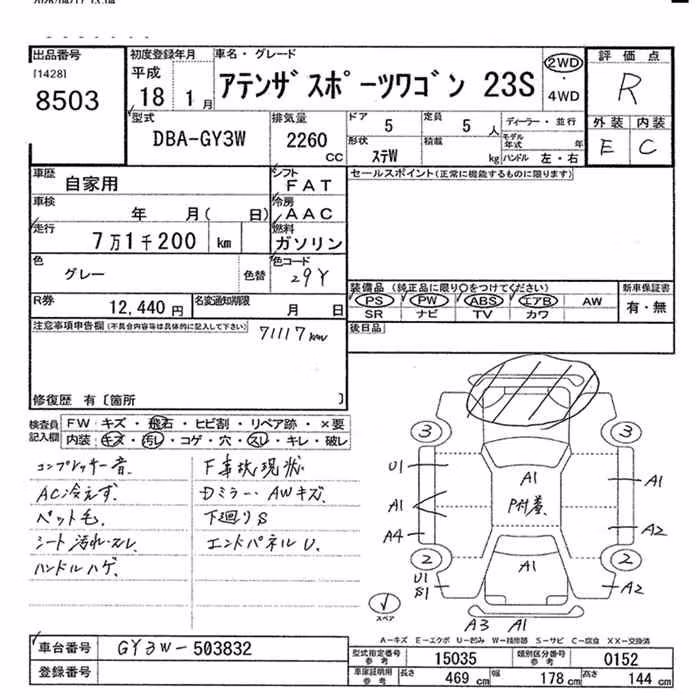 出品番号
[1428]
8503
初度登録年月
平成
18 1月
車名・グレード
アテンザスポーツワゴン 23S
2WD
・
4WD
評価点
R
外装 内装
E C
型式
DBA-GY3W
排気量
2260
CC
ドア
5
定員
5 人
形状
ステW
積載
kg
ディーラー・並行
モデル年式 年
ハンドル 左・右
車歴
自家用
シフト
FAT
車検
年 月( 日)
冷房
AAC
走行
7万1千200 km
燃料
ガソリン
色
グレー
色替
色コード
29Y
R券
12,440 円
名変通知期限
月 日
セールスポイント(正常に機能するものに限ります)
装備品 (純正品に限り○をつけてください)
PS PW ABS エアB AW
SR ナビ TV カワ
新車保証書
有・無
後日品
注意事項申告欄(不具合内容等は具体的に記入して下さい)
71117km
修復歴 有〔箇所 〕
検査員記入欄
FW:キズ・飛石・ヒビ割・リペア跡・×要
内装:キズ・汚レ・コゲ・穴・スレ・キレ・破レ
コンプレッサー音.
AC冷えず.
ペット毛.
シート汚れ・スレ
ハンドルハゲ.
F事故現状
Dミラー・AWキズ.
下廻りS
エンドパネルU.
3 3
U1
A1
A1
A1
P付着.
A4
A2
2 2
U1
S1
A1
A2
A3 A1
スペア
A-キズ E-エクボ U-凹み W-補修跡 S-サビ C-腐食 XX-交換済
車台番号
GY3W-503832
登録番号
型式指定番号
参考
15035
類別区分番号
参考
0152
車家証明用
参考
長さ
469 cm
幅
178 cm
高さ
144 cm